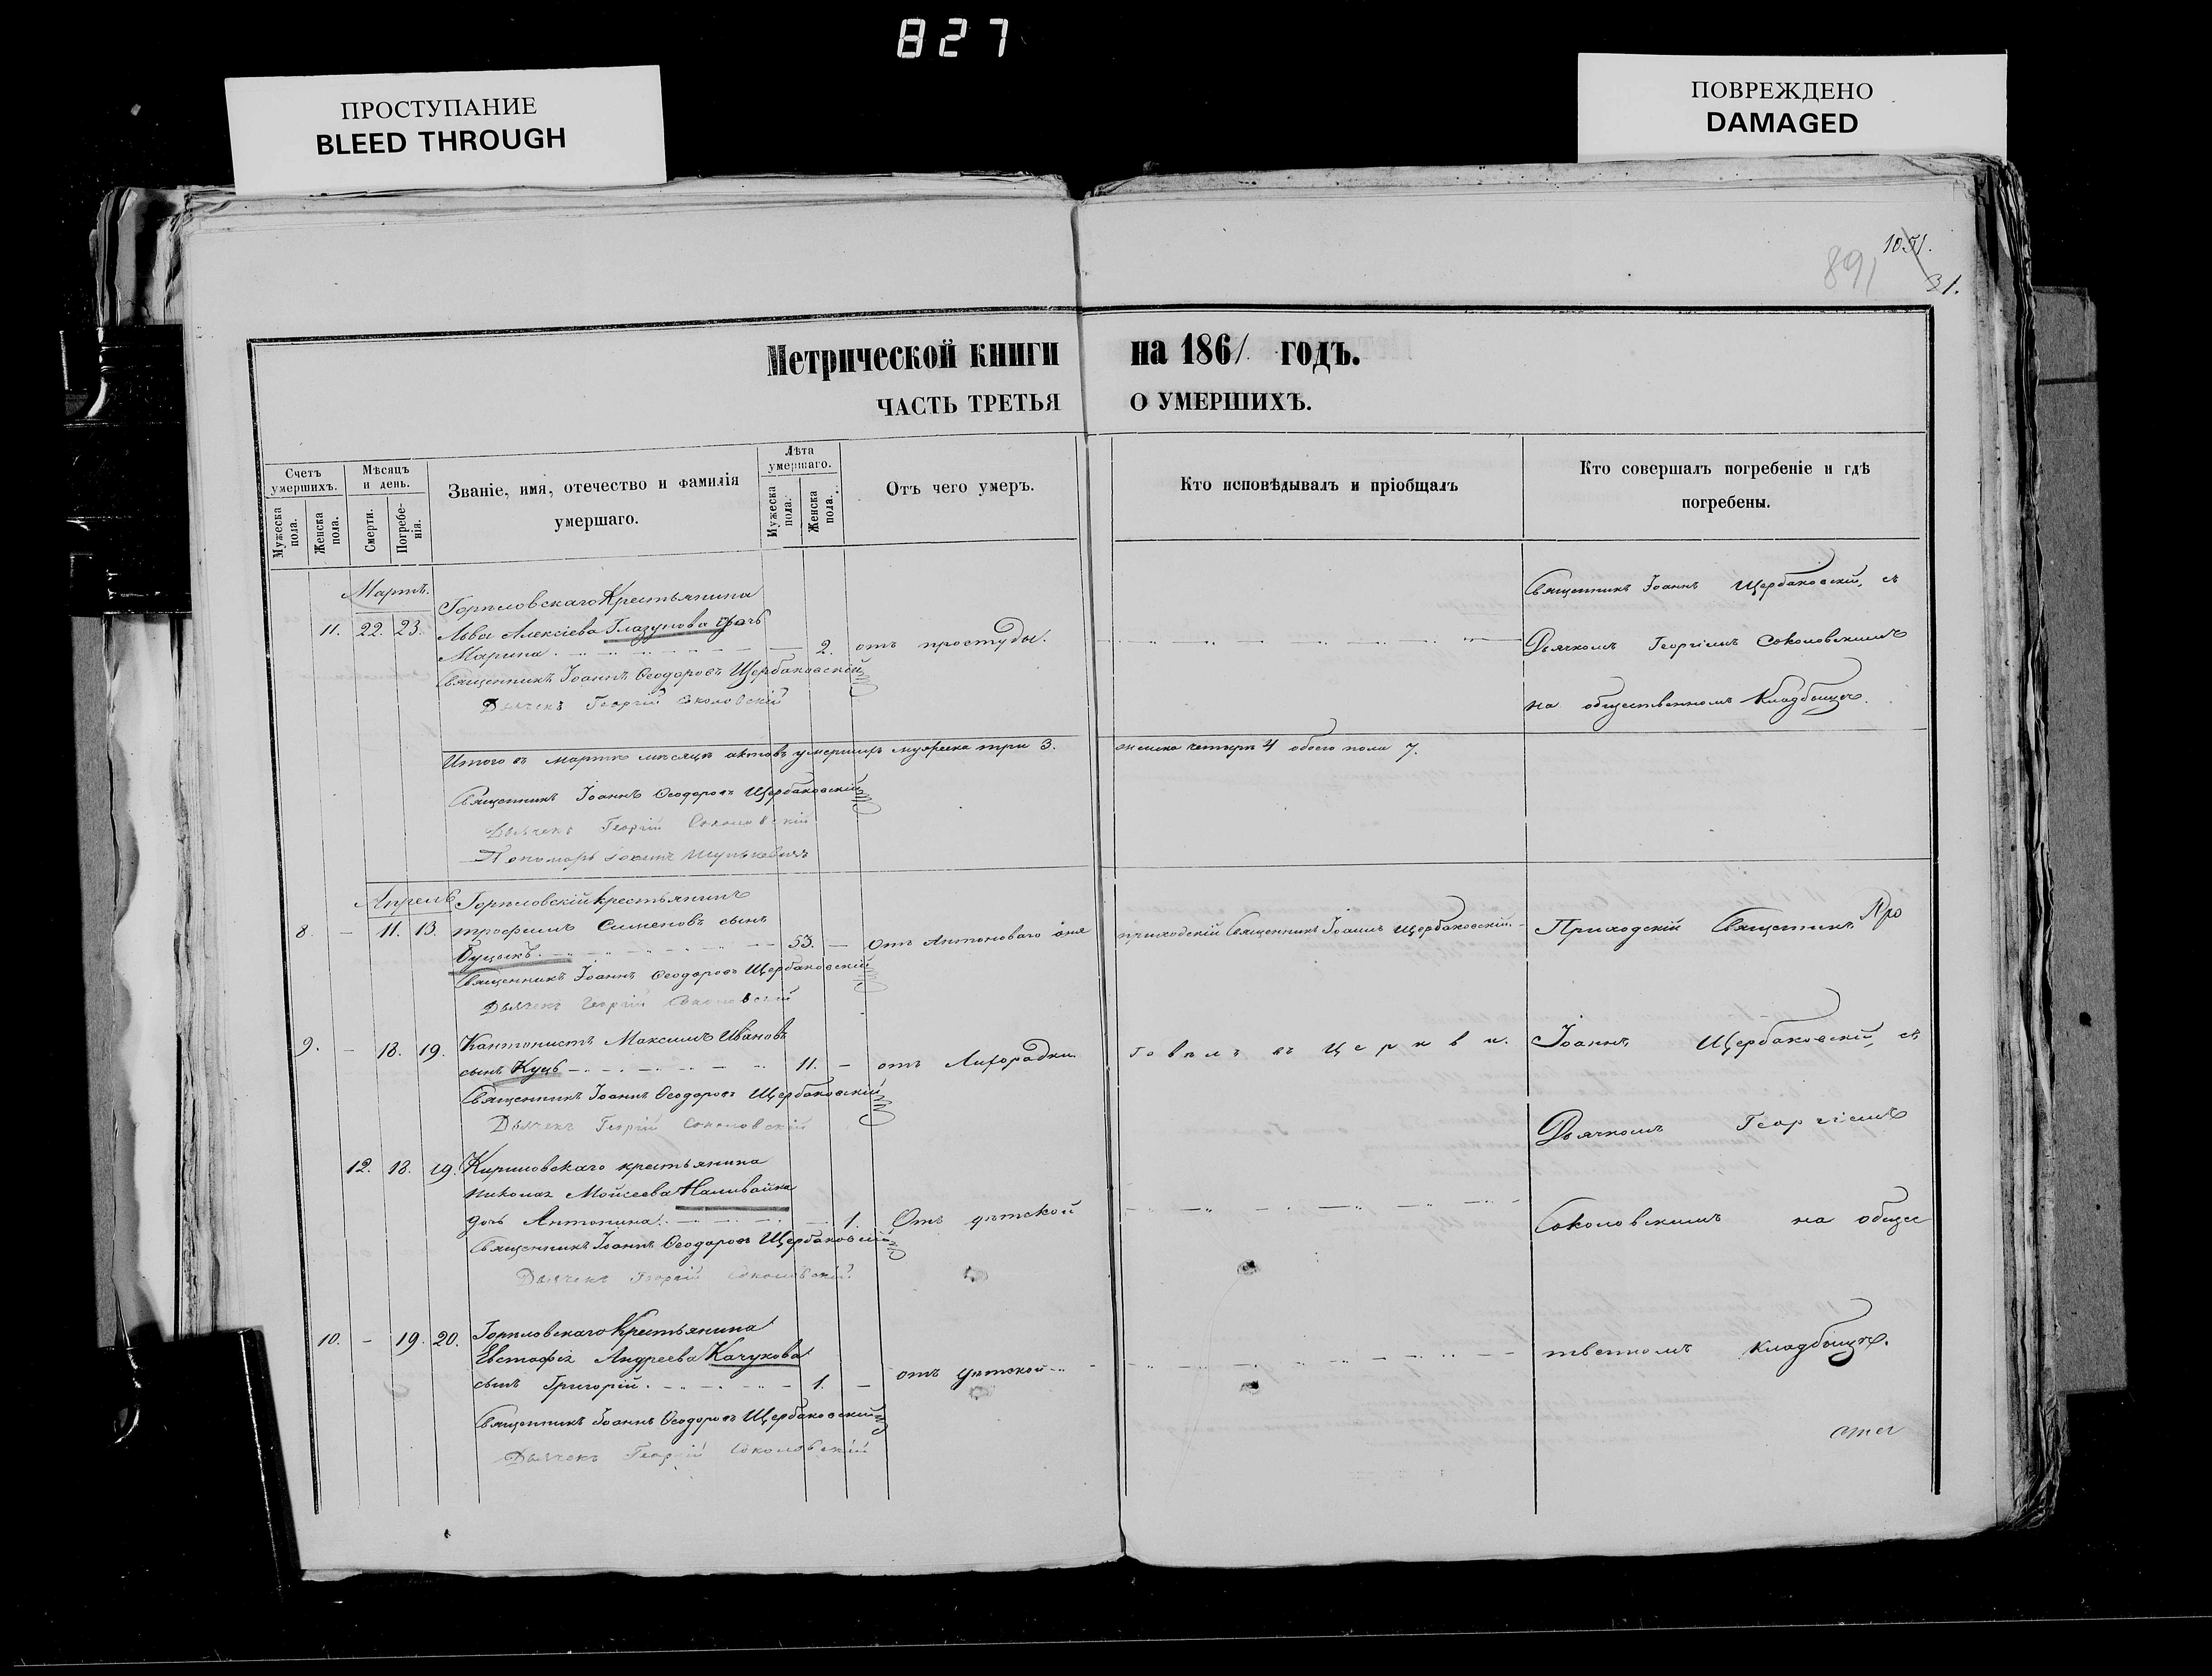 827
ПРОСТУПАНИЕ
BLEED THROUGH
ПОВРЕЖДЕНО
DAMAGED
1051.
891
31.
Метрической книги на 1861 годъ.
ЧАСТЬ ТРЕТЬЯ О УМЕРШИХЪ.
Счетъ умершихъ.
Мужеска пола.
Женска пола.
Мѣсяцъ и день.
Смерти.
Погребенія.
Званіе, имя, отечество и фамилія
умершаго.
Лѣта умершаго.
Мужеска пола.
Женска пола.
Отъ чего умеръ.
Кто исповѣдывалъ и пріобщалъ
Кто совершалъ погребеніе и гдѣ
погребены.
Мартъ.
Крестьянина
11. 22. 23. Льва Алексіева Глазунова дочь
Марина 2. отъ простуды.
Священникъ Іоаннъ Ѳеодоровъ Щербаковскій
Дьячекъ Георгій Соколовскій
Священникъ Іоаннъ Щербаковскій, съ
Дьячкомъ Георгіемъ Соколовскимъ
на общественномъ Кладбищѣ.
Итого въ мартѣ мѣсяцѣ актовъ умершихъ мужеска три 3. женска четыре 4 обоего пола 7.
Священникъ Іоаннъ Ѳеодоровъ Щербаковскій
Дьячекъ Георгій Соколовскій
Пономарь Іоаннъ
Апрель
крестьянинъ
8 – 11. 13. трофимъ Сименовъ сынъ
Буцыкъ. 53. – Отъ Антоноваго огня
приходскій Священникъ Іоаннъ Щербаковскій.
Священникъ Іоаннъ Ѳеодоровъ Щербаковскій
Дьячекъ Георгій Соколовскій
9. – 18. 19. Кантонистъ Максимъ Ивановъ
сынъ Куць 11. – отъ Лихорадки. говѣлъ въ Церкви.
Священникъ Іоаннъ Ѳеодоровъ Щербаковскій
Дьячекъ Георгій Соколовскій
12. 18. 19. крестьянина
Николая Мойсеева Наливайка
дочь Антонина. 1. Отъ дѣтской
Священникъ Іоаннъ Ѳеодоровъ Щербаковскій
Дьячекъ Георгій Соколовскій
10. – 19. 20. Крестьянина
Евстафія Андреева Качукова
сынъ Григорій. 1. – отъ дѣтской
Священникъ Іоаннъ Ѳеодоровъ Щербаковскій
Дьячекъ Георгій Соколовскій
Приходскій Священникъ
Іоаннъ Щербаковскій, съ
Дьячкомъ Георгіемъ
Соколовскимъ на общес
твенномъ кладбищѣ.